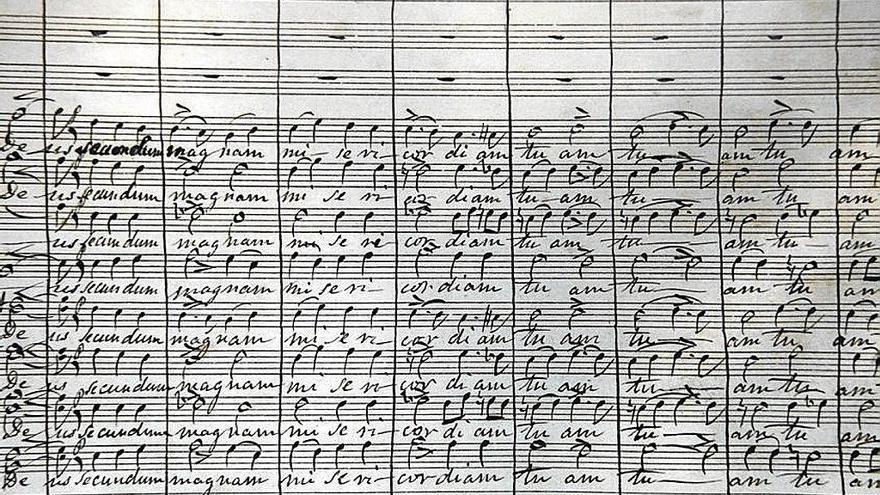 De us secundum magnam mi se ri cor di am tu am tu am tu am
De us secundum magnam mi se ri cor diam tu am tu am tu am
us secundum magnam mi se ri cor diam tu am tu am tu am
us secundum magnam mi se ri cor diam tu am tu am tu am
De us secundum magnam mi se ri cor di am tu am tu am tu am
De us secundum magnam mi se ri cor di am tu am tu am tu am
De us secundum magnam mi se ri cor di am tu am tu am tu am
De us secundum magnam mi se ri cor diam tu am tu am tu am